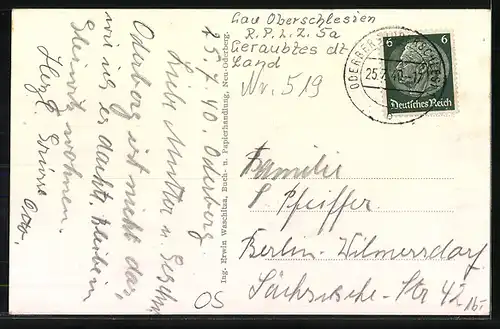 Gau Oberschlesien
R.P.L.Z. 5a
Geraubtes dt.
Land
Nr. 519
25.7.40. Oderberg
Liebe Mutter u. Geschw.
Oderberg ist nicht das,
wie ich es dacht. Bleibe in
wohnen.
Herzl. Grüsse Otto.
Ing. Erwin Waschtus, Buch- u. Papierhandlung, Neu-Oderberg.
ODERBERG
25.7.40
6 6
Deutsches Reich
Familie
S. Pfeiffer
Berlin-Wilmersdorf
Sächsische-Str 42
OS